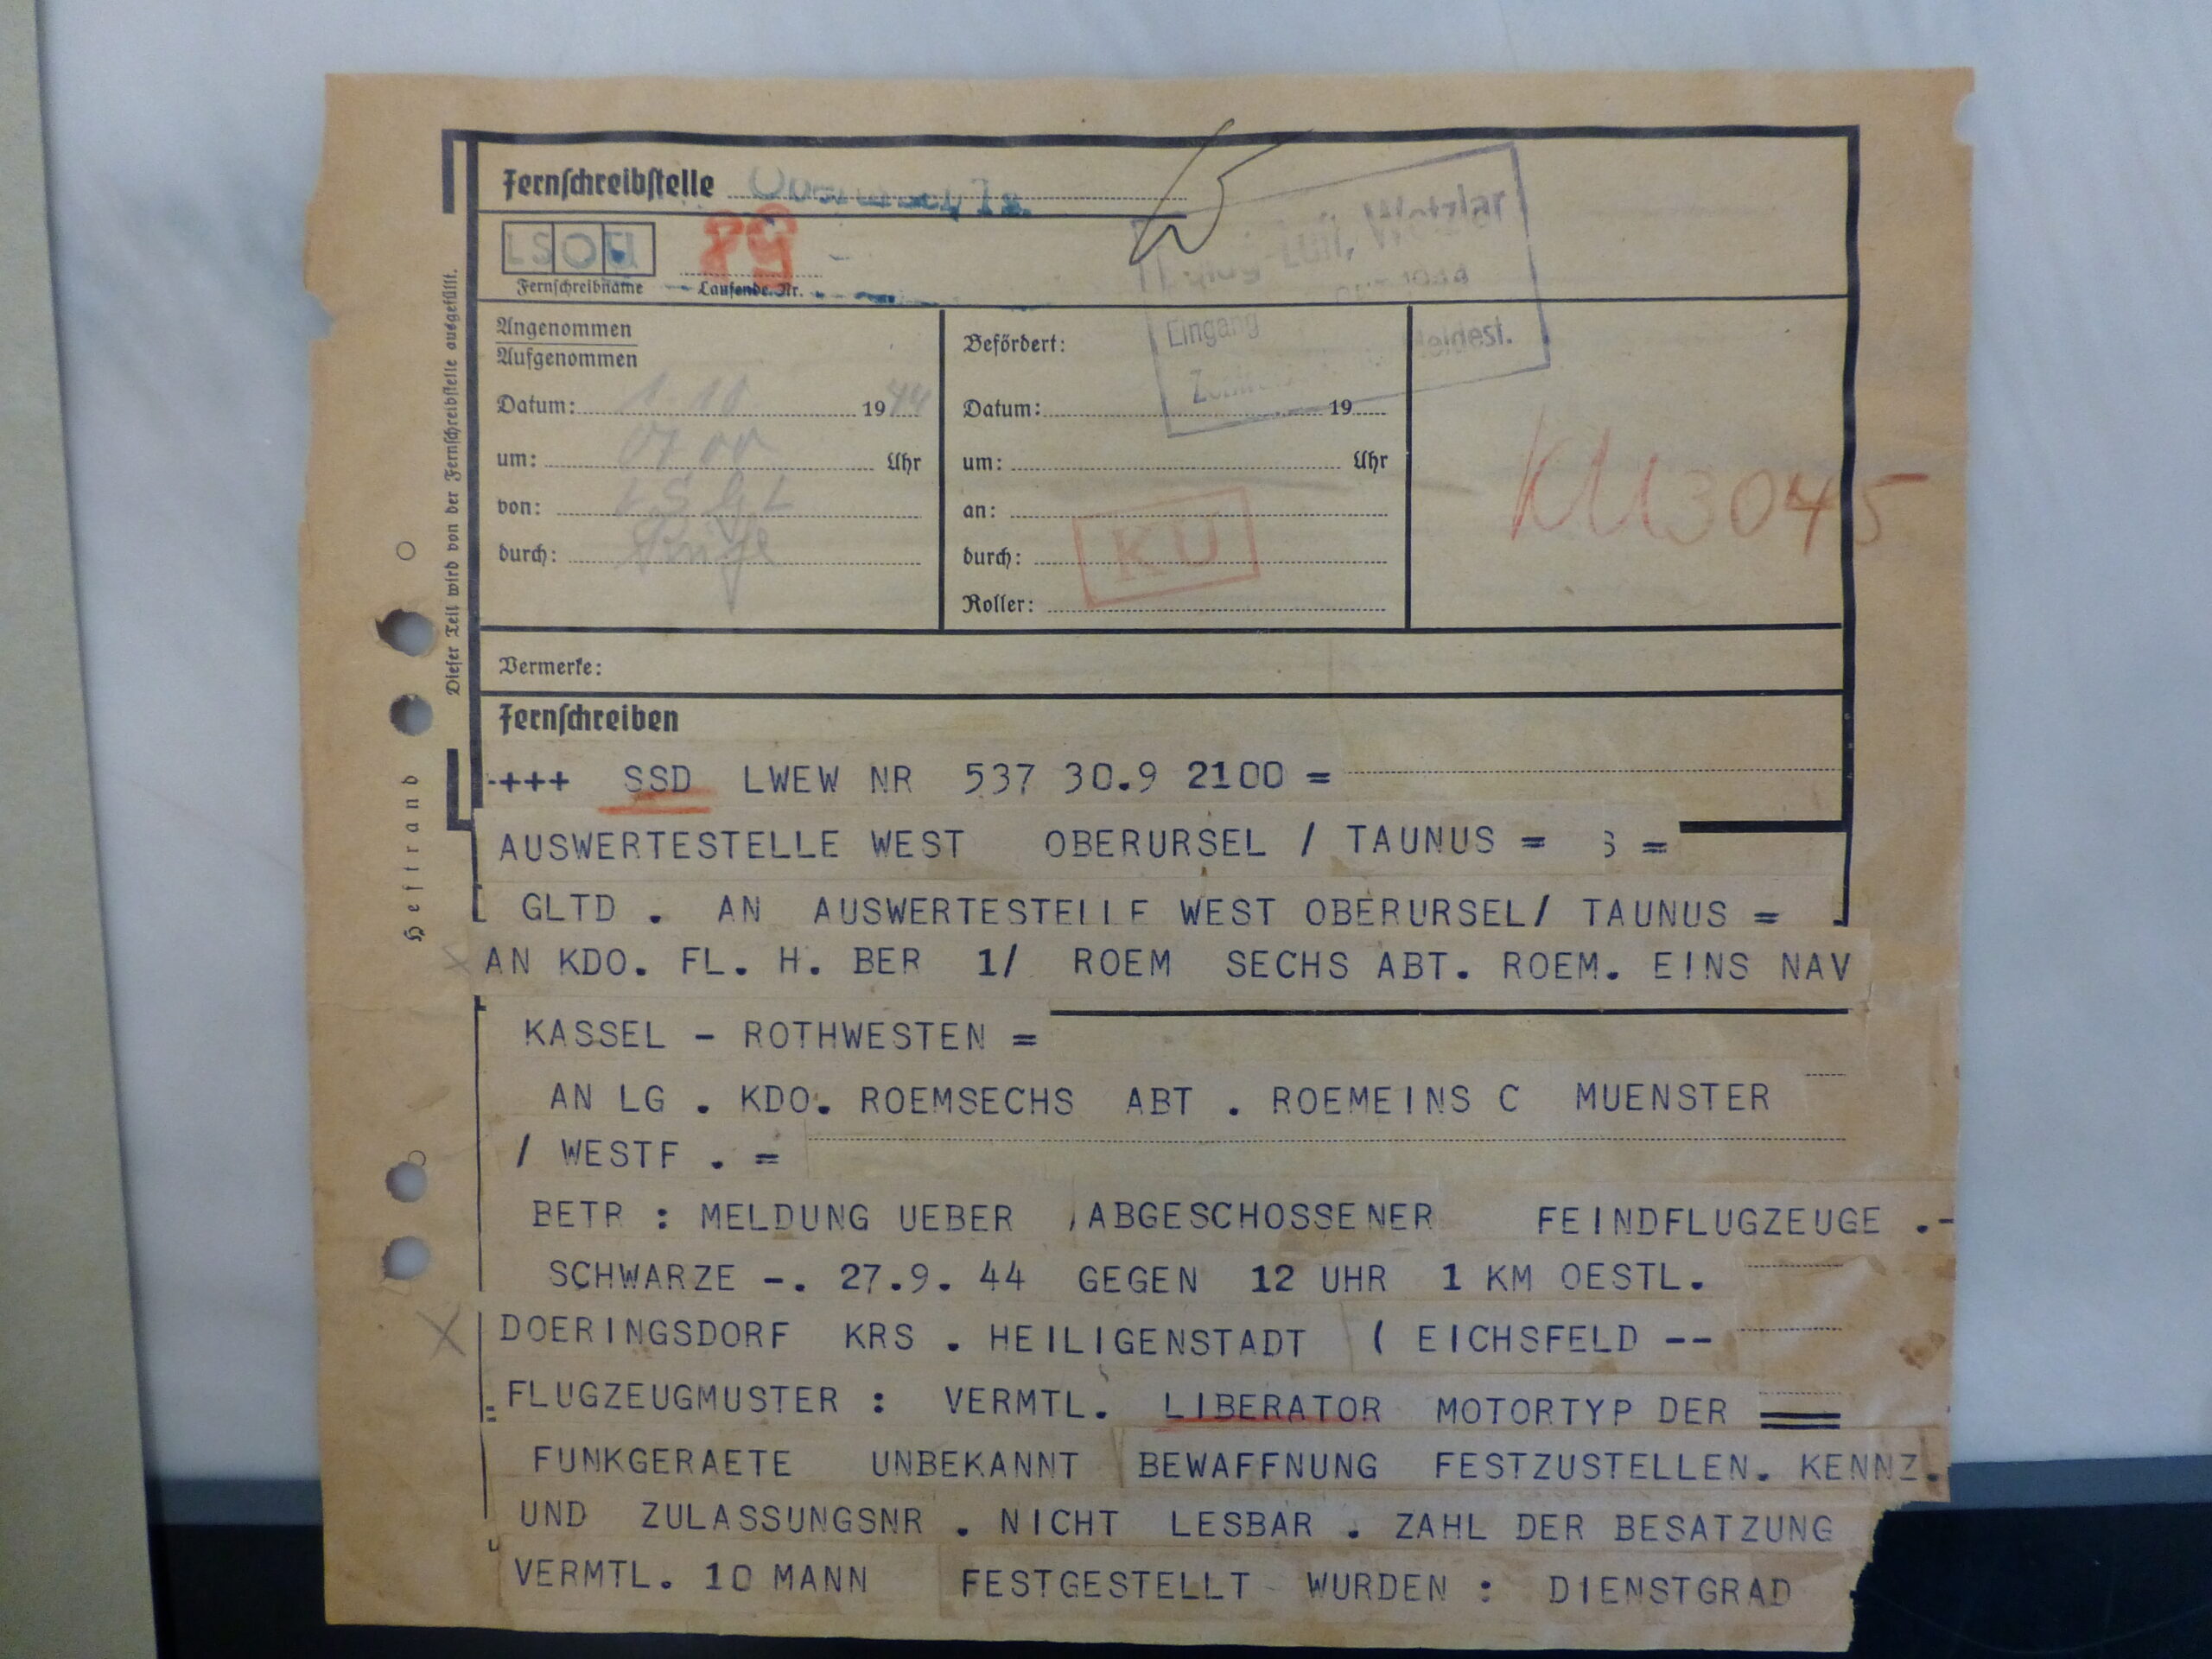 Fernschreibstelle
LSOU
89
Fernschreibname
Laufende Nr.
Luft, Wetzlar
1944
Eingang
Meldest.
Dieser Teil wird von der Fernschreibstelle ausgefüllt.
Angenommen
Aufgenommen
Datum: 1.10. 1944
um: Uhr
von:
durch:
Befördert:
Datum: 19
um: Uhr
an:
durch:
Roller:
KU
KU3045
Vermerke:
Fernschreiben
Heftrand
-+++ SSD LWEW NR 537 30.9 2100 =
AUSWERTESTELLE WEST OBERURSEL / TAUNUS = S =
GLTD . AN AUSWERTESTELLE WEST OBERURSEL/ TAUNUS =
AN KDO. FL. H. BER 1/ ROEM SECHS ABT. ROEM. EINS NAV
KASSEL - ROTHWESTEN =
AN LG . KDO. ROEMSECHS ABT . ROEMEINS C MUENSTER
/ WESTF . =
BETR : MELDUNG UEBER ABGESCHOSSENER FEINDFLUGZEUGE .-
SCHWARZE -. 27.9. 44 GEGEN 12 UHR 1 KM OESTL.
DOERINGSDORF KRS . HEILIGENSTADT ( EICHSFELD --
FLUGZEUGMUSTER : VERMTL. LIBERATOR MOTORTYP DER
FUNKGERAETE UNBEKANNT BEWAFFNUNG FESTZUSTELLEN. KENNZ.
UND ZULASSUNGSNR . NICHT LESBAR . ZAHL DER BESATZUNG
VERMTL. 10 MANN FESTGESTELLT WURDEN : DIENSTGRAD